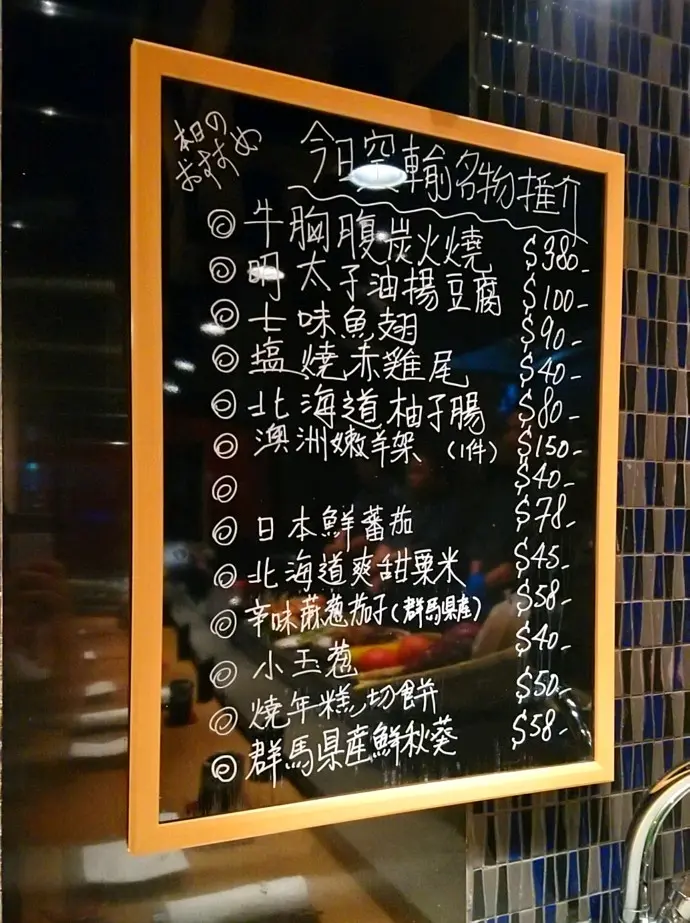 本日の
おすすめ
今日空輸名物推介
◎ 牛胸腹炭火燒 $380-
◎ 明太子油揚豆腐 $100-
◎ 七味魚翅 $90-
◎ 塩燒赤雞尾 $40-
◎ 北海道柚子腸 $80-
◎ 澳洲嫩羊架 (1件) $150-
◎ $40-
◎ 日本鮮蕃茄 $78-
◎ 北海道爽甜粟米 $45-
◎ 辛味蔴葱茄子(群馬県産) $58-
◎ 小玉葱 $40-
◎ 燒年糕,切餅 $50-
◎ 群馬県産鮮秋葵 $58-